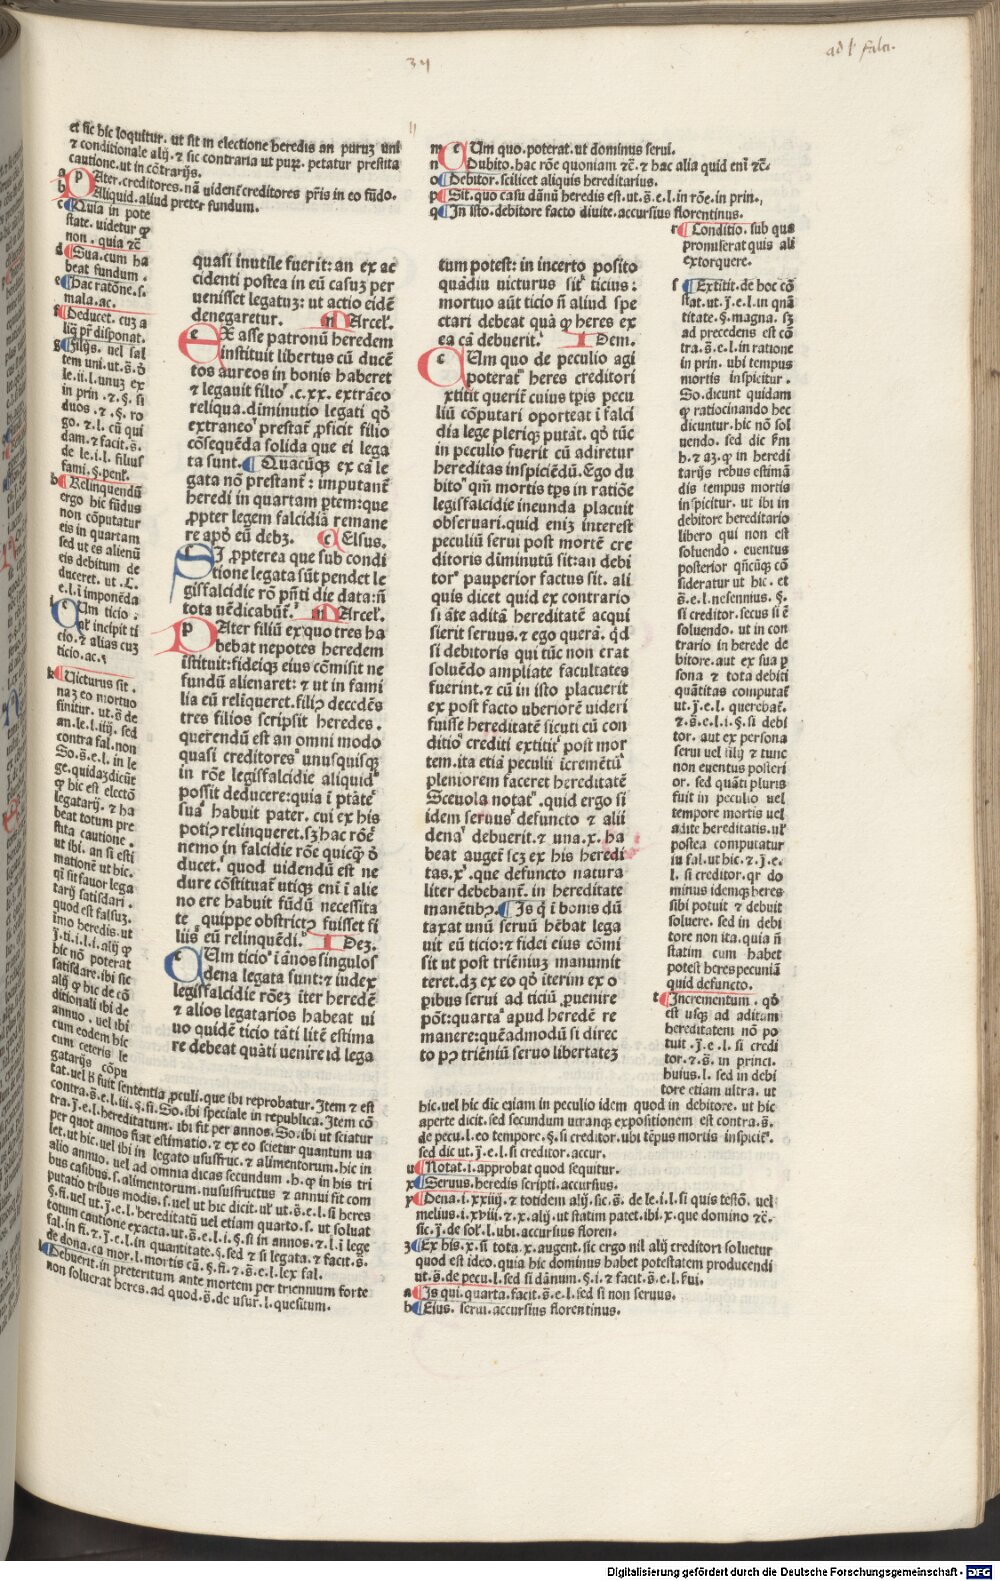 ad l' falci.
34
et sic hic loquitur. ut sit in electione heredis an puruz uni
⁊ conditionale alij. ⁊ sic contraria ut pur. petatur prestita
cautione. ut in cõtrarijs.
a PAter. creditores. nã uident̃ creditores p̃ris in eo fũdo.
b Aliquid. aliud preter fundum.
c Quia in pote
state. uidetur ꝙ
non. quia ⁊c̃
d Sua. cum ha
beat fundum.
e Hac ratõne. s.
mala. ac.
f Deducet. cuz a
liq̃ p̃r disponat.
g Filijs. uel sal
tem uni. ut. s̃. õ
le. ii. l. unuz ex
in prin. ⁊. §. si
duos. ⁊. §. ro
go. ⁊. l. cũ qui
dam. ⁊ facit. s̃.
de le. i. l. filius
fami. §. penl'.
h Relinquendũ
ergo hic fũdus
non cõputatur
eis in quartam
sed ut es alienũ
eis debitum de
duceret. ut. C.
e. l. ĩ imponẽda
i CUm ticio.
al' incipit ti
cio. ⁊ alias cuz
ticio. ac.
k Uicturus sit.
naz eo mortuo
finitur. ut. s̃ de
an. le. l. iiij. sed
contra fal. non
So. s̃. e. l. in le
ge. quidaz dicũt
ꝙ hic est electõ
legatarij. ⁊ ha
beat totum pre
stita cautione.
ut ibi. an si esti
mationẽ ut hic.
q̃ sit fauor lega
tarij satisdari.
quod est falsuz.
imo heredis. ut
j̃. ti. i. l. i. alij ꝙ
hic nõ poterat
satisdare. ibi sic
alij ꝙ hic de cõ
ditionali ibi de
annuo. uel ibi
cum eodem hic
cum ceteris le
gatarijs cõpu
tat. uel h̃ fuit sententia ꝓculi. que ibi reprobatur. Item ⁊ est
contra. s̃. e. l. iii. §. fi. So. ibi speciale in republica. Item cõ
tra. j̃. e. l. hereditatum. ibi fit per annos. So. ibi ut sciatur
per quot annos fiat estimatio. ⁊ ex eo scietur quantum ua
let. ut hic. uel ibi in legato ususfruc. ⁊ alimentorum. hic in
alio annuo. uel ad omnia dicas secundum. h. ꝙ in his tri
bus casibus. s. alimentorum. ususfructus ⁊ annui fit com
putatio tribus modis. s. uel ut hic dicit. ul' ut. s̃. e. l. si heres
§. fi. uel ut. j̃. e. l. hereditatũ uel etiam quarto. s. ut soluat
totum cautione exacta. ut. s̃. e. l. i. §. si in annos. ⁊. l. ĩ lege
fal. in fi. ⁊. j̃. e. l. in quantitate. §. sed ⁊ si legata. ⁊ facit. s̃.
de dona. ca mor. l. mortis cã. §. fi. ⁊. s̃. e. l. lex fal.
l Debuerit. in preteritum ante mortem per triennum forte
non soluerat heres. ad quod. s̃. de usur. l. quesitum.
quasi inutile fuerit: an ex ac
cidenti postea in eũ casuz per
uenisset legatuz: ut actio eidẽ
denegaretur. MArcel'.
EX asse patronũ heredem
instituit libertus cũ ducẽ
tos aureos in bonis haberet
⁊ legauit filio .c. xx. extrãeo
reliqua. diminutio legati qđ
extraneo prestat' ꝓficit filio
cõsequẽda solida que ei lega
ta sunt. Quacũqꝫ ex cã le
gata nõ prestant': imputant'
heredi in quartam ꝑtem: que
ꝓpter legem falcidiã remane
re apđ eũ debꝫ. CElsus.
SI ꝓpterea que sub condi
tione legata sũt pendet le
gisfalcidie rõ pñti die data: ñ
tota uẽdicabũt'. MArcel'.
PAter filiũ ex quo tres ha
bebat nepotes heredem
istituit: fideiqꝫ eius cõmisit ne
fundũ alienaret: ⁊ ut in fami
lia eũ relĩqueret. filiꝰ decedẽs
tres filios scripsit heredes.
querendũ est an omni modo
quasi creditores unusquisqꝫ
in rõe legisfalcidie aliquid
possit deducere: quia ĩ ptãte
suã habuit pater. cui ex his
potiꝰ relinqueret. sꝫ hac rõẽ
nemo in falcidie rõe quicꝙ õ
ducet. quod uidendũ est ne
dure cõstituat' utiqꝫ eni ĩ alie
no ere habuit fũdũ necessita
te quippe obstrictꝰ fuisset fi
liis eũ relinquẽdi. IDeꝫ.
CUm ticio ĩ ãnos singulos
dena legata sunt: ⁊ iudex
legisfalcidie rõeꝫ iter heredẽ
⁊ alios legatarios habeat ui
uo quidẽ ticio tãti litẽ estima
re debeat quãti uenire id lega
m CUm quo. poterat. ut dominus serui.
n Dubito. hac rõe quoniam ⁊c̃. ⁊ hac alia quid eni ⁊c̃.
o Debitor. scilicet aliquis hereditarius.
p Sit. quo casu dãnũ heredis est. ut. s̃. e. l. in rõe. in prin.,
q In isto. debitore facto diuite. accursius florentinus.
tum potest: in incerto posito
quãdiu uicturus sit ticius:
mortuo aũt ticio ñ aliud spe
ctari debeat quã ꝙ heres ex
ea cã debuerit. IDem.
CUm quo de peculio agi
poterat heres creditori
extitit querit' cuius tpis pecu
liũ cõputari oporteat ĩ falci
dia lege pleriqꝫ putãt. qđ tũc
in peculio fuerit cũ adiretur
hereditas inspiciẽdũ. Ego du
bito qm̃ mortis tps in ratiõe
legisfalcidie ineunda placuit
obseruari. quid eniꝫ interest
peculiũ serui post mortẽ cre
ditoris diminutũ sit: an debi
tor pauperior factus sit. ali
quis dicet quid ex contrario
si ãte aditã hereditatẽ acqui
sierit seruus. ⁊ ego querã. q̃d
si debitoris qui tũc non erat
soluẽdo ampliate facultates
fuerint. ⁊ cũ in isto placuerit
ex post facto uberiorẽ uideri
fuisse hereditatẽ sicuti cũ con
ditio crediti extitit post mor
tem. ita etiã peculii icremẽtũ
pleniorem faceret hereditatẽ
Sceuola notat'. quid ergo si
idem seruus defuncto ⁊ alii
dena debuerit. ⁊ una. x. ha
beat auget' scꝫ ex his heredi
tas. x. que defuncto natura
liter debebant'. in hereditate
manẽtibꝰ. Is q̃ ĩ bonis dũ
taxat unũ seruũ hẽbat lega
uit eũ ticio: ⁊ fidei eius cõmi
sit ut post triẽniuꝫ manumit
teret. dꝫ ex eo qđ iterim ex o
pibus serui ad ticiũ ꝑuenire
põt: quarta apud heredẽ re
manere: quẽadmodũ si direc
to pꝰ triẽniũ seruo libertateꝫ
r Conditio. sub qua
promiserat quis ali
extorquere.
s Extitit. de hoc cõ
stat. ut. j̃. e. l. in quã
titate. §. magna. sꝫ
ad precedens est cõ
tra. s̃. e. l. in ratione
in prin. ubi tempus
mortis inspicitur.
So. dicunt quidam
ꝙ ratiocinando hec
dicuntur. hic nõ sol
uendo. sed dic s̃m
h. ⁊ az. ꝙ in heredi
tarijs rebus estimã
dis tempus mortis
inspicitur. ut ibi in
debitore hereditario
libero qui non est
soluendo. euentus
posterior qñcũqꝫ cõ
sideratur ut hic. et
s̃. e. l. nesennius. §.
si creditor. secus si ẽ
soluendo. ut in con
trario in herede de
bitore. aut ex sua ꝑ
sona ⁊ tota debiti
quãtitas computat'
ut. j̃. e. l. querebat'.
⁊. s̃. e. l. i. §. si debi
tor. aut ex persona
serui uel filij ⁊ tunc
non euentus posteri
or. sed quãti pluris
fuit in peculio uel
tempore mortis uel
adite hereditatis. ul'
postea computatur
in fal. ut hic. ⁊. j̃. e.
l. si creditor. qr do
minus idemqꝫ heres
sibi potuit ⁊ debuit
soluere. sed in debi
tore non ita. quia ñ
statim cum habet
potest heres pecuniã
quid defuncto.
t Incrementum. qđ
est usqꝫ ad aditam
hereditatem nõ po
tuit. j̃. e. l. si credi
tor. ⁊. s̃. in princi.
huius. l. sed in debi
tore etiam ultra. ut
hic. uel hic dic̃ etiam in peculio idem quod in debitore. ut hic
aperte dicit. sed secundum utranqꝫ expositionem est contra. s̃.
de pecu. l. eo tempore. §. si creditor. ubi tẽpus mortis inspicit'.
sed dic ut. j̃. e. l. si creditor. accur.
u Notat. i. approbat quod sequitur.
x Seruus. heredis scripti. accursius.
y Dena. i. xxiiij. ⁊ totidem alij. sic. s̃. de le. i. l. si quis testõ. uel
melius. i. xviij. ⁊. x. alij. ut statim patet. ibi. x. que domino ⁊c̃.
sic. j̃. de sol'. l. ubi. accursius floren.
z Ex his. x. si tota. x. augent. sic ergo nil alij creditori soluetur
quod est ideo. quia hic dominus habet potestatem producendi
ut. s̃. de pecu. l. sed si dãnum. §. i. ⁊ facit. s̃. e. l. s̃ui.
a Is qui. quarta. facit. s̃. e. l. sed si non seruus.
b Eius. serui. accursius florentinus.
Digitalisierung gefördert durch die Deutsche Forschungsgemeinschaft - DFG